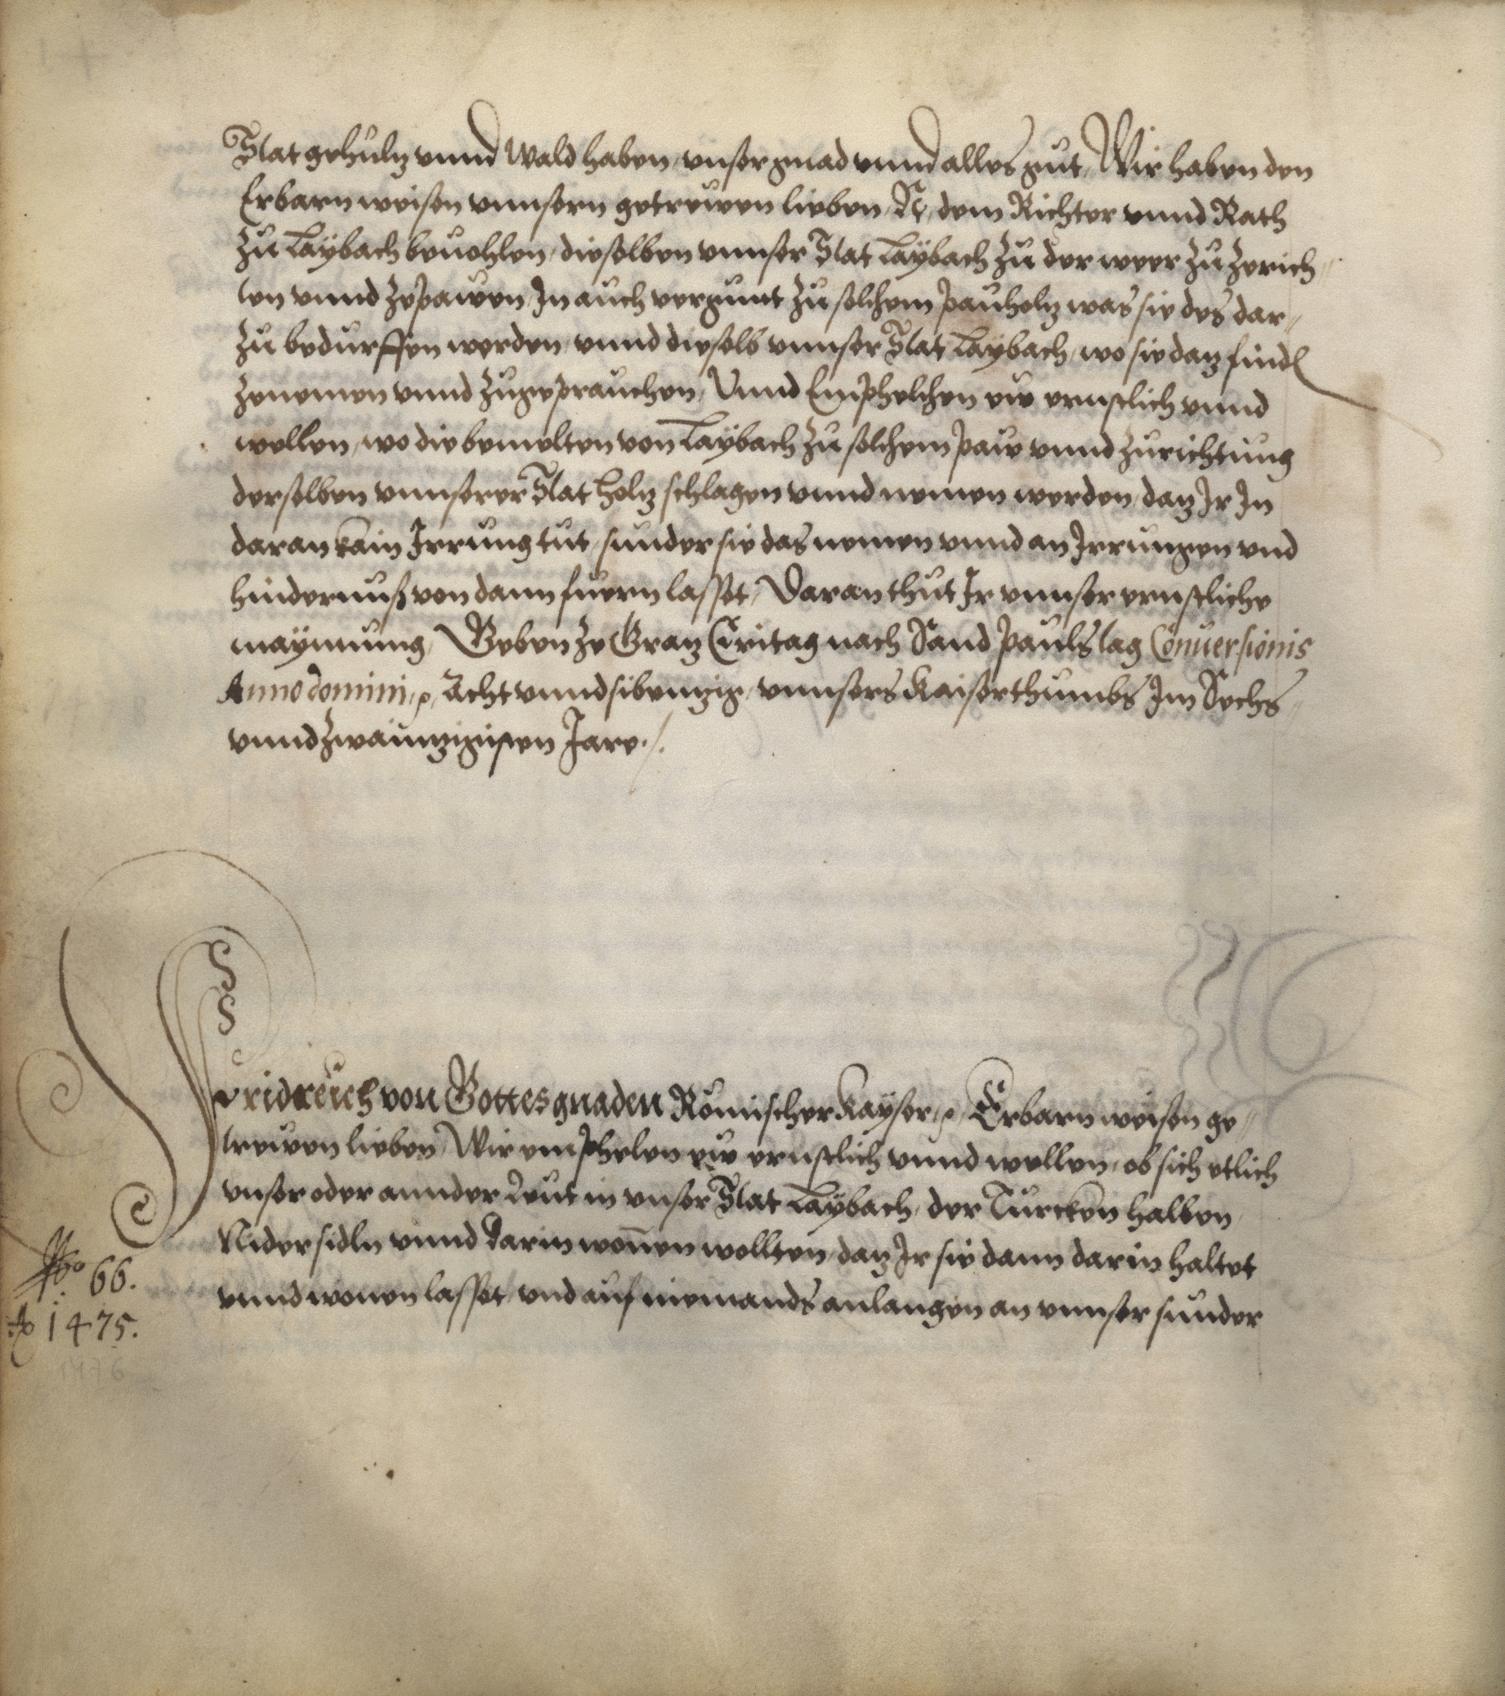 Stat gehulz vnnd Wald haben, vnser gnad vnnd alles gut, Wir haben den
Erbarn weisen vnnsern getrewen lieben, N, dem Richter vnnd Rath
zu Laybach beuohlen, dieselben vnnser Stat Laybach zu der weer zu zerich-
ten vnnd zepawen, In auch vergunt zu solchem pauholz was sie des dar-
zu bedurffen werden, vnnd dieselb vnnser Stat Laybach, wo sie daz find
zenemen vnnd zugeprauchen, Vnnd Emphelchen eüch ernstlich vnnd
wellen, wo die bemelten von Laybach zu solchem paw vnnd zurichtung
derselben vnnserer Stat holz schlagen vnnd nemen werden, daz Ir In
daran kain Irrung tut, sunder sie das nemen vnnd an Irrungen vnd
hindernuß von dann fueren lasset, Daran thut Ir vnnser ernstliche
maynnung, Geben ze Graz Eritag nach Sand Pauls tag Conuersionis
Anno domini, Acht vnnd sibenzig, vnnsers Kaiserthumbs Im Sechs-
vnnd zwainzigisten Jare.
Fridreich von Gottes gnaden Römischer Kayser, Erbarn weisen ge-
trewen lieben, Wir emphelen eüch ernstlich vnnd wellen, ob sich etlich
vnser oder annder Leut in vnser Stat Laybach, der Turcken halben
Nidersidln vnnd darin wonnen wollten, daz Ir sie dann darin haltet
vnnd wonen lasset, vnd auf niemands anlangen an vnnser sunder
66.
Ao 1475.
1476